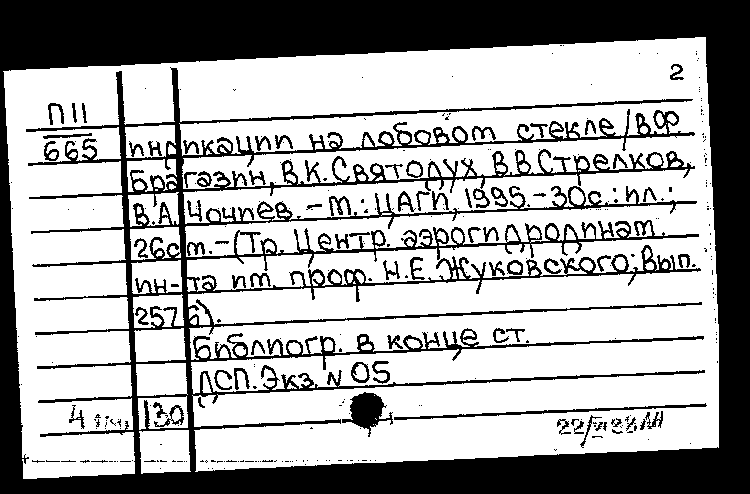 2
П 11
665
индикации на лобовом стекле / В.Ф.
Брагазин, В.К. Святодух, В.В. Стрелков,
В.А. Чочиев. – М.: ЦАГИ, 1995. – 30 с.: ил.;
26 см. – (Тр. Центр. аэрогидродинам.
ин-та им. проф. Н.Е. Жуковского; Вып.
2576).
Библиогр. в конце ст.
ДСП. Экз. N 05.
4 130
22/VI